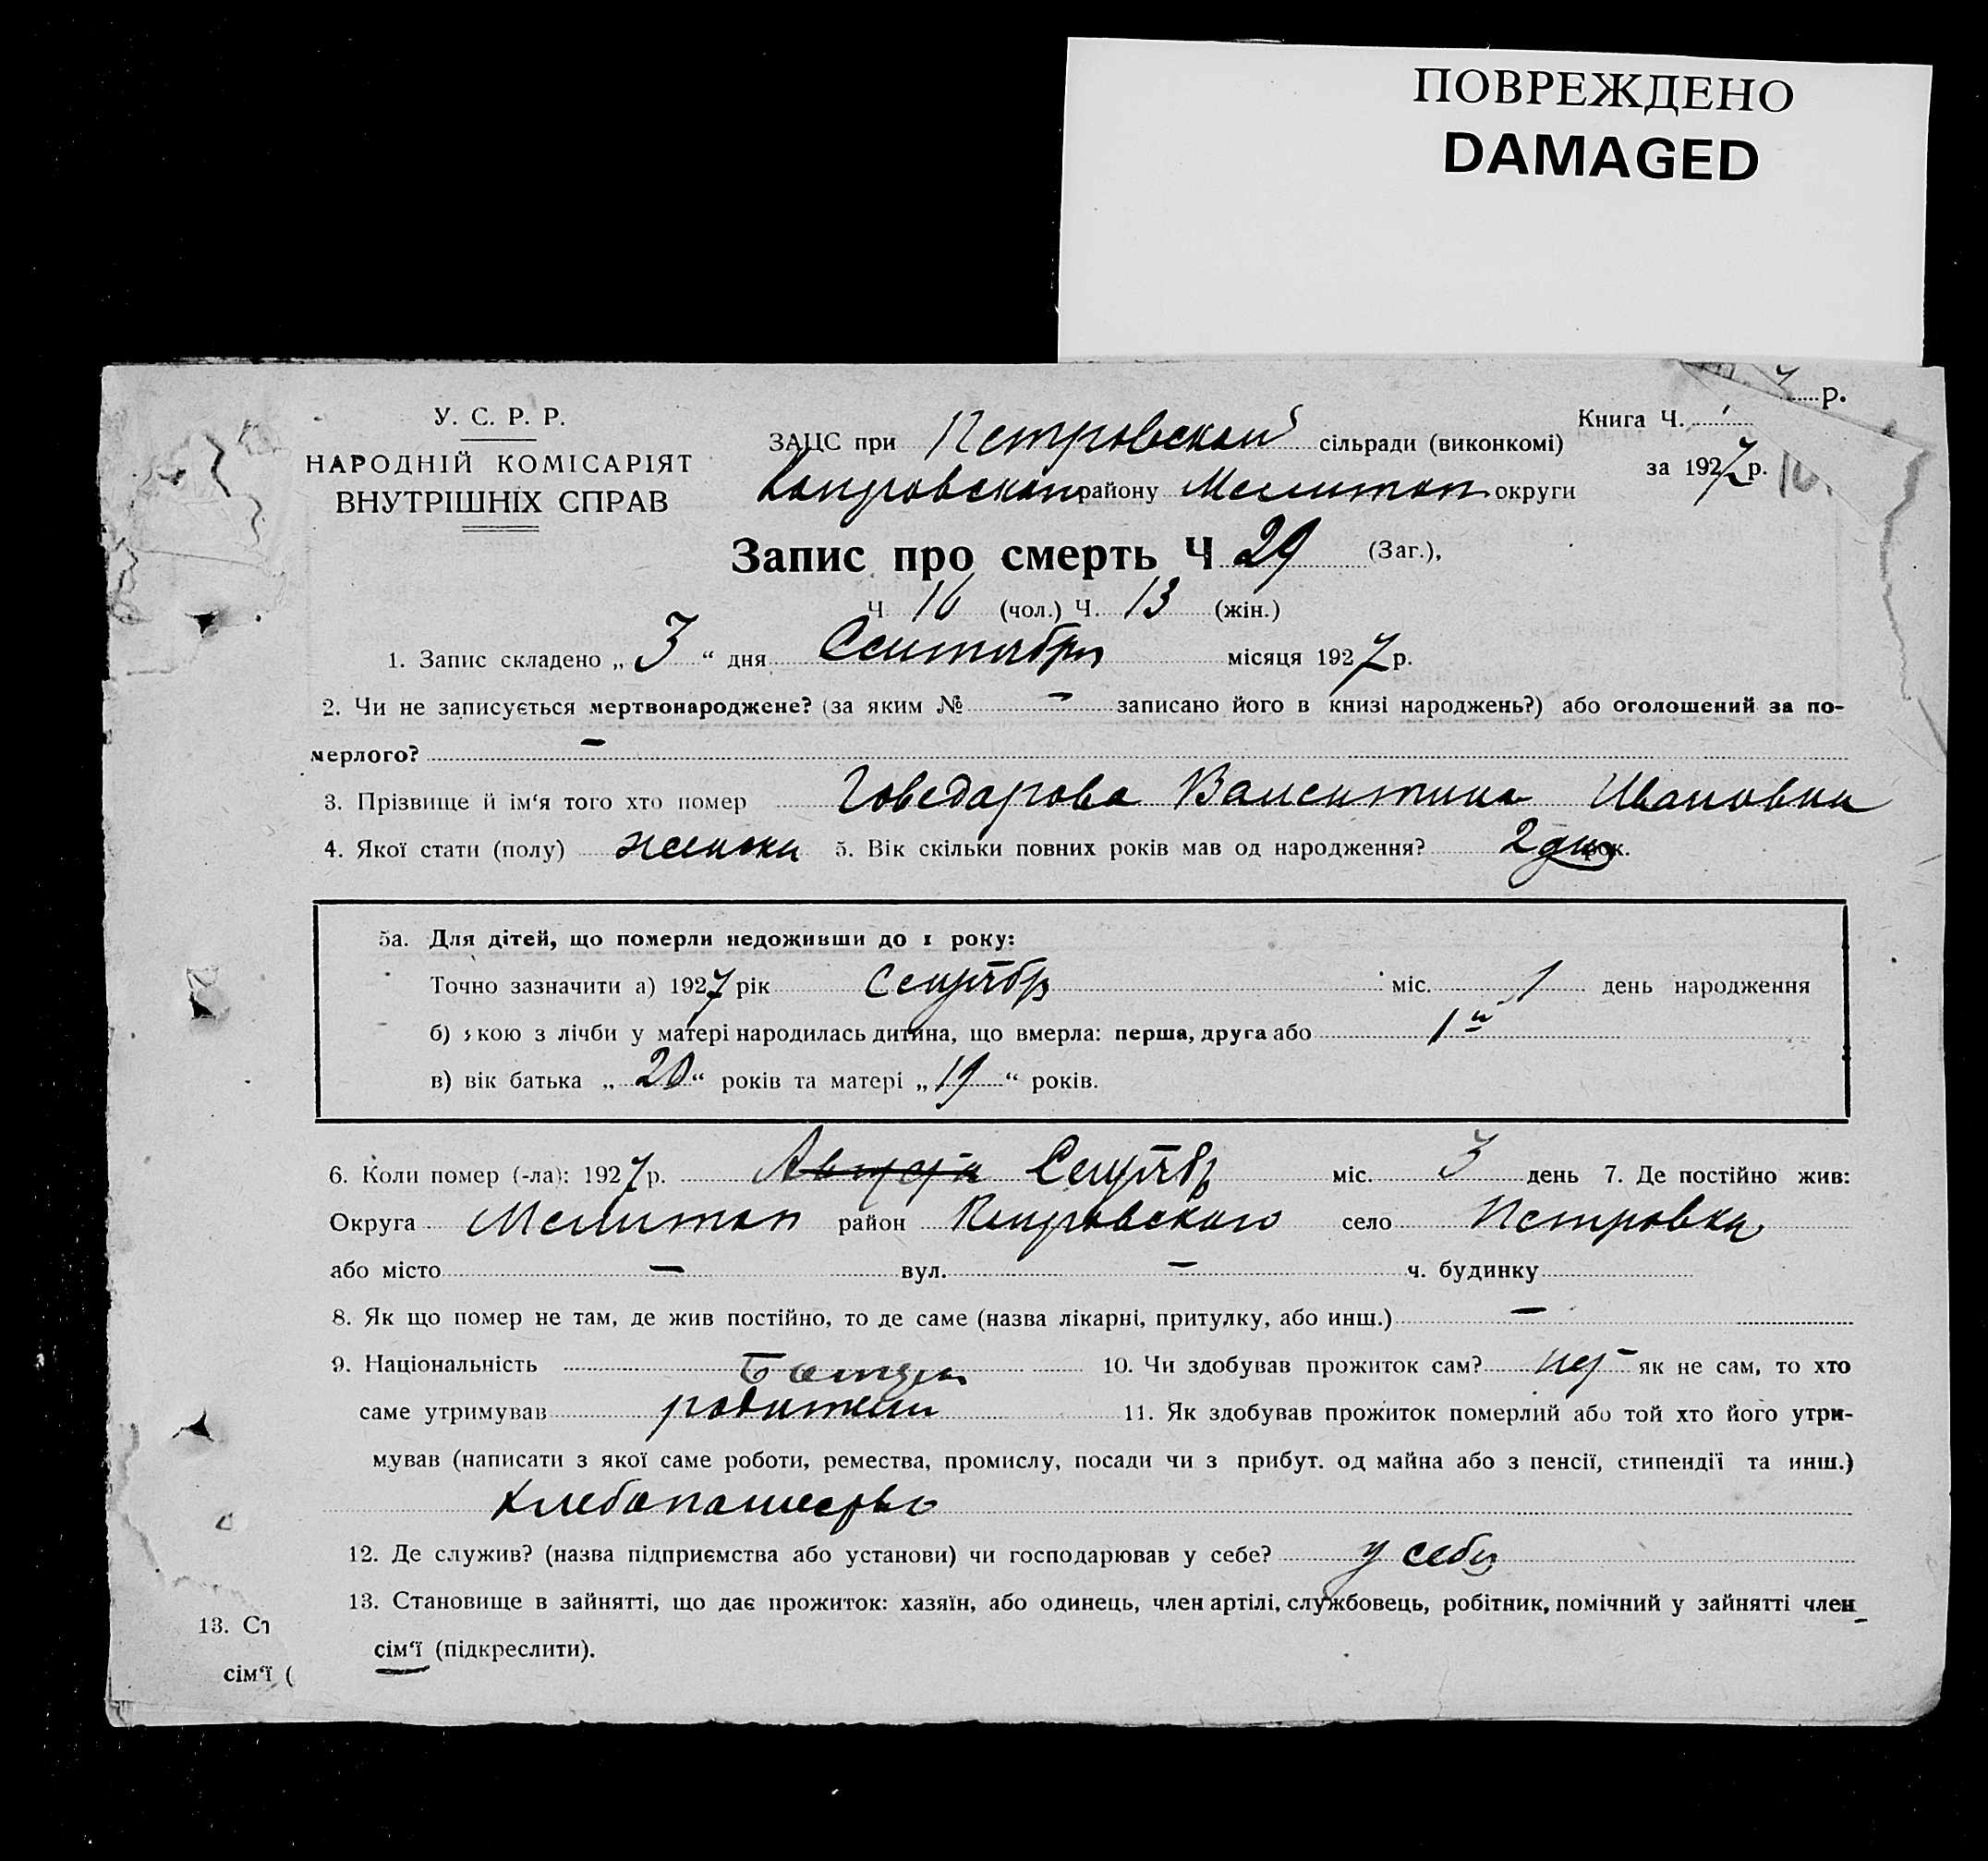 ПОВРЕЖДЕНО
DAMAGED
р.
У. С. Р. Р.
НАРОДНІЙ КОМІСАРІЯТ
ВНУТРІШНІХ СПРАВ
Книга Ч.
за 1927 р.
ЗАЦС при Петровской сільради (виконкомі)
району Мелитоп округи
Запис про смерть Ч 29 (Заг.),
Ч 16 (чол.) Ч. 13 (жін.)
1. Запис складено „ 3 “ дня Сентября місяця 1927 р.
2. Чи не записується мертвонароджене? (за яким № — записано його в книзі народжень?) або оголошений за по-
мерлого? —
3. Прізвище й ім'я того хто помер Говедарова Валентина Ивановна
4. Якої стати (полу) женски 5. Вік скільки повних років мав од народження? 2 дня рок.
5а. Для дітей, що померли недоживши до 1 року:
Точно зазначити а) 1927 рік Сентябр міс. 1 день народження
б) якою з лічби у матері народилась дитина, що вмерла: перша, друга або 1я
в) вік батька „ 20 “ років та матері „ 19 “ років.
6. Коли помер (-ла): 1927 р. Августа Сентябр міс. 3 день 7. Де постійно жив:
Округа Мелитоп район село Петровка
або місто — вул. — ч. будинку
8. Як що помер не там, де жив постійно, то де саме (назва лікарні, притулку, або инш.) —
9. Національність 10. Чи здобував прожиток сам? нет як не сам, то хто
саме утримував родители 11. Як здобував прожиток померлий або той хто його утри-
мував (написати з якої саме роботи, ремества, промислу, посади чи з прибут. од майна або з пенсії, стипендії та инш.)
хлебопашество
12. Де служив? (назва підприємства або установи) чи господарював у себе? у себя
13. Становище в зайнятті, що дає прожиток: хазяїн, або одинець, член артілі, службовець, робітник, помічний у зайнятті член
сім'ї (підкреслити).
13. Ст
сім'ї (